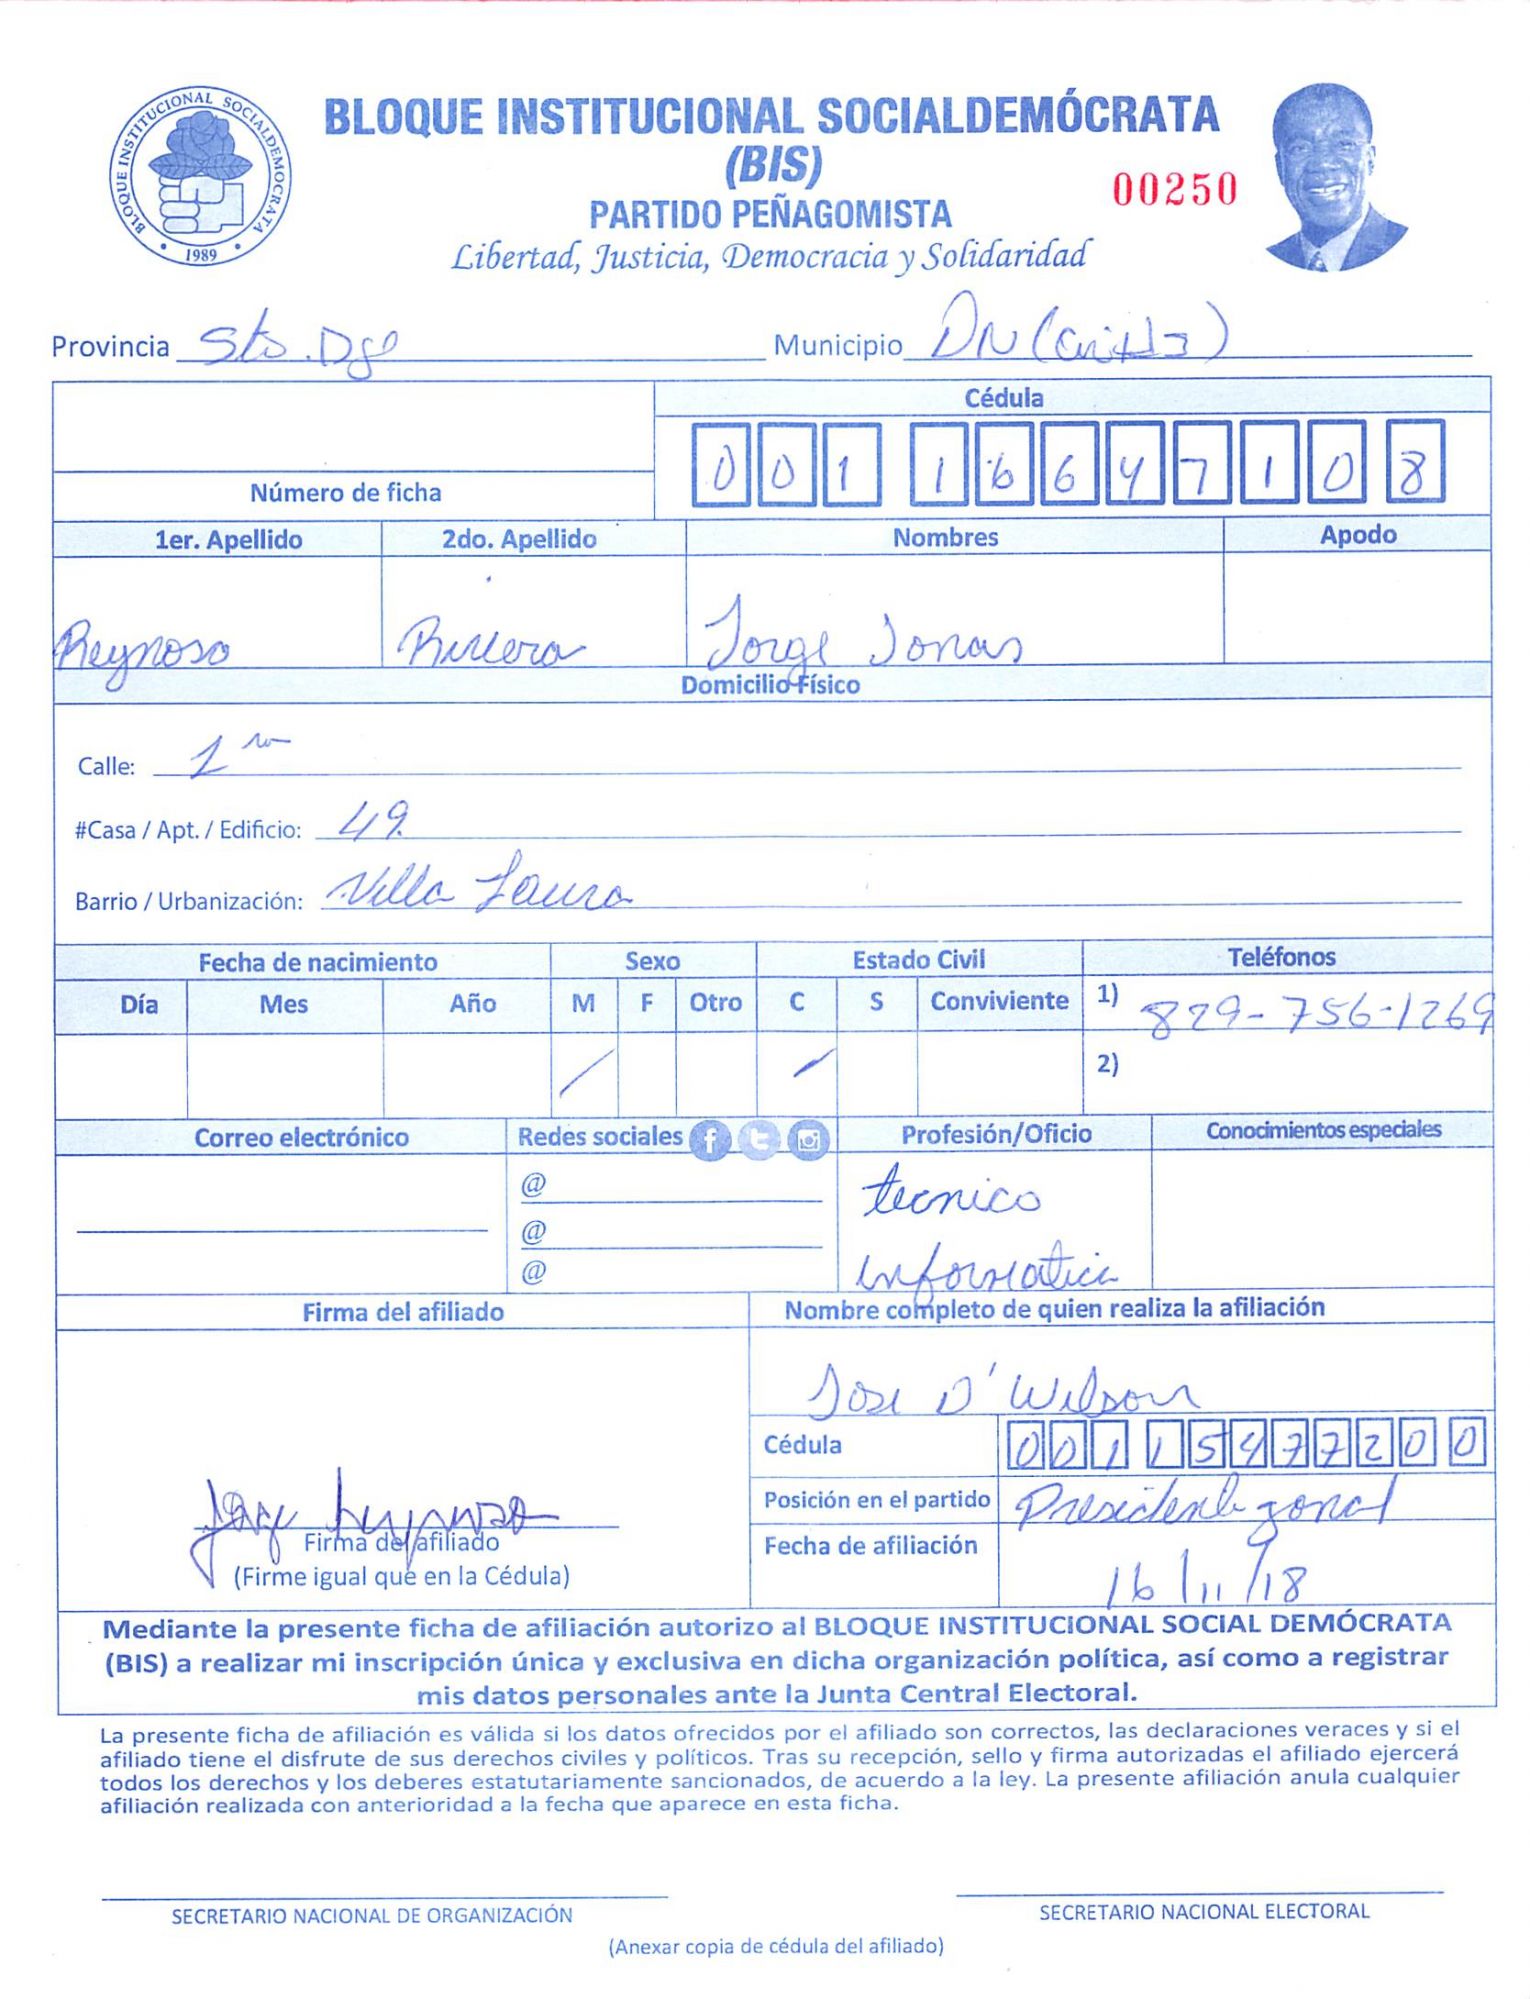 BLOQUE INSTITUCIONAL SOCIALDEMOCRATA
1989
BLOQUE INSTITUCIONAL SOCIALDEMÓCRATA
(BIS)
00250
PARTIDO PEÑAGOMISTA
Libertad, Justicia, Democracia y Solidaridad
Provincia Sto. Dgo Municipio DN
Cédula
001 1664710 8
Número de ficha
1er. Apellido 2do. Apellido Nombres Apodo
Reynoso Jorge Jonas
Domicilio Físico
Calle: 1ra
#Casa / Apt. / Edificio: 49.
Barrio / Urbanización: Villa Laura
Fecha de nacimiento Sexo Estado Civil Teléfonos
Día Mes Año M F Otro C S Conviviente 1) 829-756-1269
/ / 2)
Correo electrónico Redes sociales Profesión/Oficio Conocimientos especiales
@ tecnico
@
@ informatica
Firma del afiliado Nombre completo de quien realiza la afiliación
Jose D' Wilson
Cédula 001 1547720 0
Posición en el partido Presidente zonal
Jorge Reynoso
Firma del afiliado
(Firme igual que en la Cédula)
Fecha de afiliación 16/11/18
Mediante la presente ficha de afiliación autorizo al BLOQUE INSTITUCIONAL SOCIAL DEMÓCRATA
(BIS) a realizar mi inscripción única y exclusiva en dicha organización política, así como a registrar
mis datos personales ante la Junta Central Electoral.
La presente ficha de afiliación es válida si los datos ofrecidos por el afiliado son correctos, las declaraciones veraces y si el
afiliado tiene el disfrute de sus derechos civiles y políticos. Tras su recepción, sello y firma autorizadas el afiliado ejercerá
todos los derechos y los deberes estatutariamente sancionados, de acuerdo a la ley. La presente afiliación anula cualquier
afiliación realizada con anterioridad a la fecha que aparece en esta ficha.
SECRETARIO NACIONAL DE ORGANIZACIÓN SECRETARIO NACIONAL ELECTORAL
(Anexar copia de cédula del afiliado)